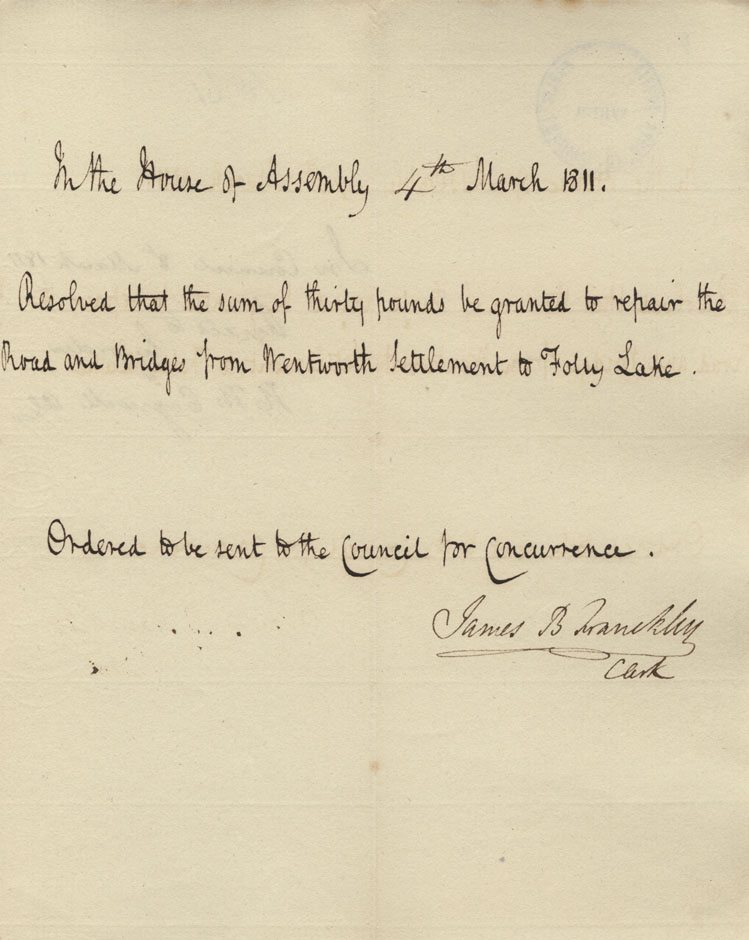 In the House of Assembly 4th March 1811.
Resolved that the sum of thirty pounds be granted to repair the
Road and Bridges from Wentworth Settlement to Folly Lake.
Ordered to be sent to the Council for Concurrence.
James B Franckly
Clerk